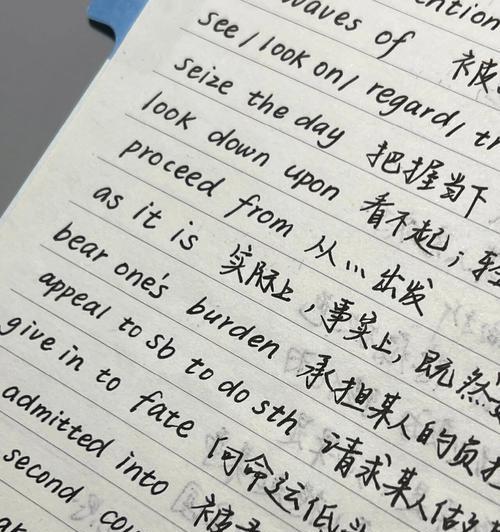 waves of 被
see / look on / regard /
seize the day 把握当下
look down upon 看不起；轻
proceed from 从…出发
as it is 实际上，事实上，既然
bear one's burden 承担某人的负担
appeal to sb to do sth 请求某人做
give in to fate 向命运低头
admitted into 被
second